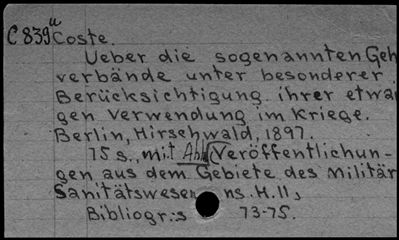 C 839 u
Coste.
Ueber die sogenannten Geh
verbände unter besonderer
Berücksichtigung ihrer etwai
gen Verwendung im Kriege.
Berlin, Hirschwald, 1897.
75 s., mit Abb (Veröffentlichun-
gen aus dem Gebiete des Militär
Sanitätswesen ns. H.11,
Bibliogr.: s 73-75.